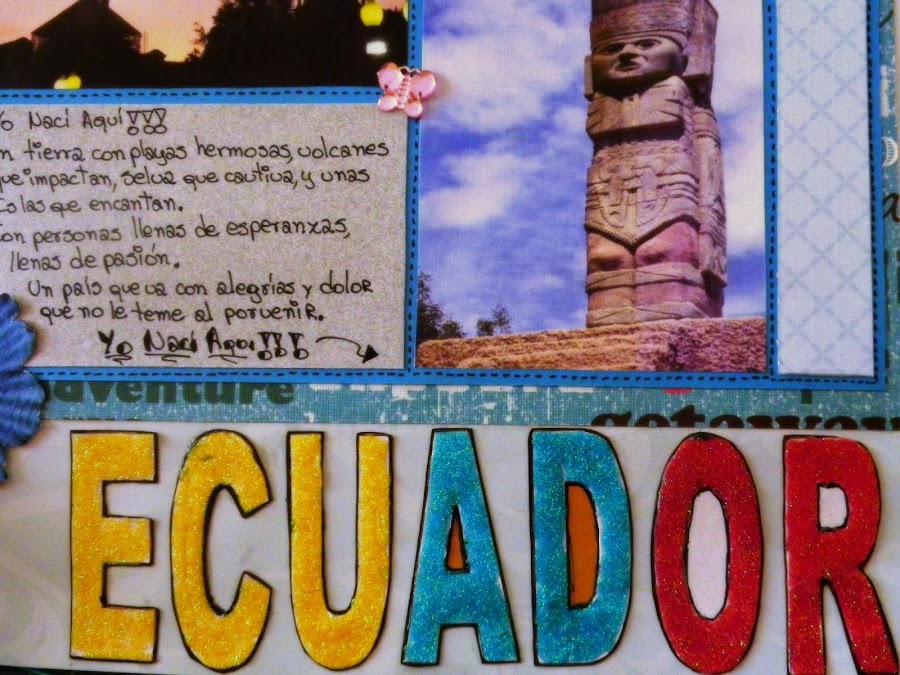 Yo Nací Aquí!!!
En tierra con playas hermosas, volcanes
que impactan, selva que cautiva, y unas
Islas que encantan.
Con personas llenas de esperanxas,
llenas de pasión.
Un país que va con alegrías y dolor
que no le teme al porvenir.
Yo Nací Aquí!!!
adventure
getaway
ECUADOR